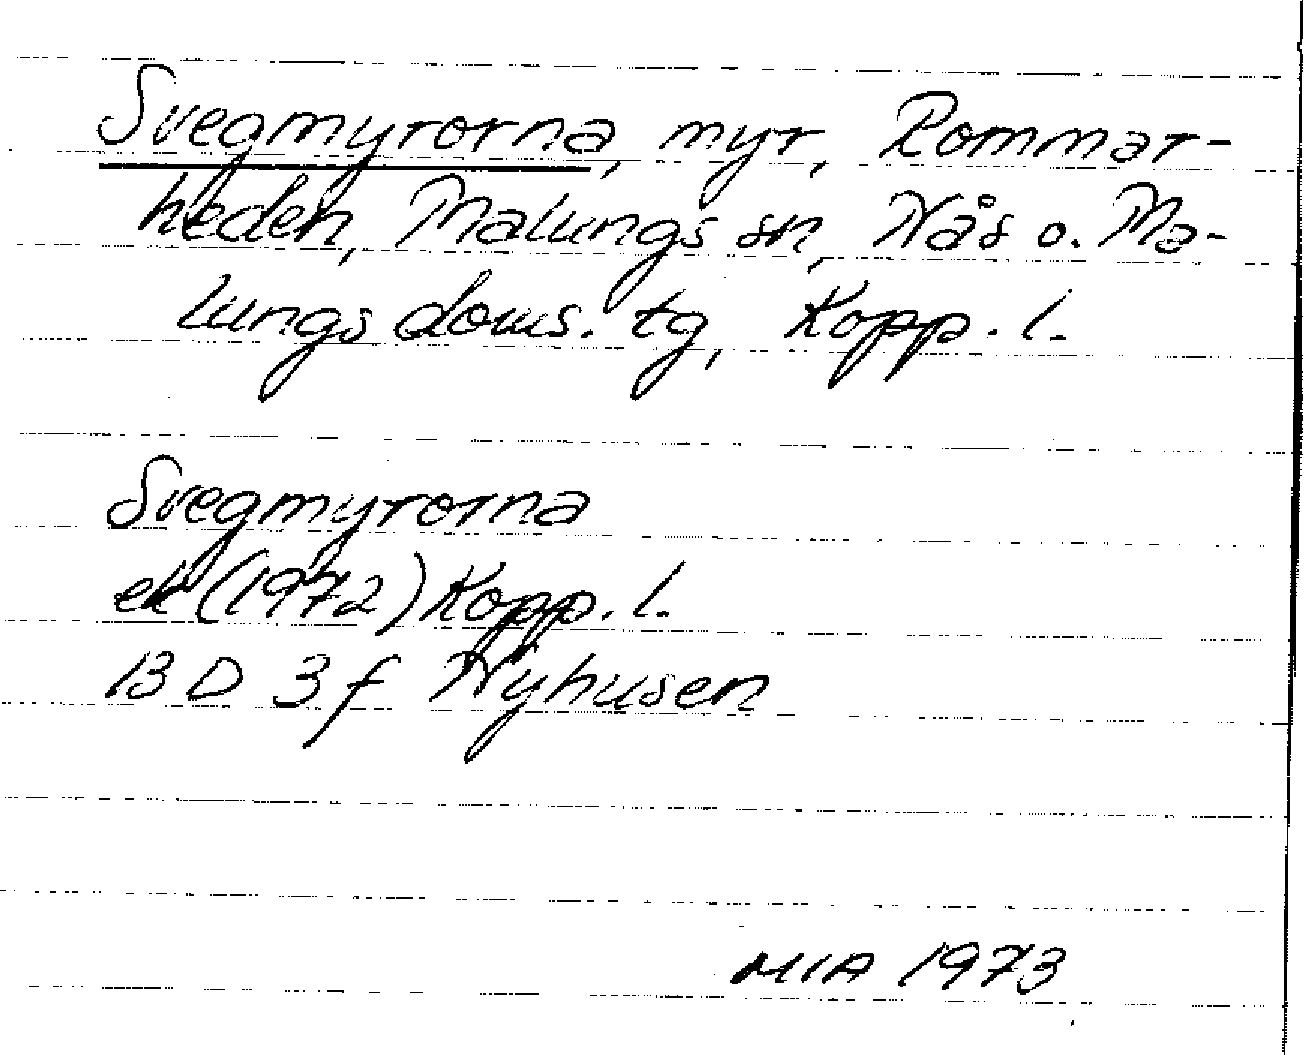 Svegmyrorna, myr, Rommar-
heden, Malungs sn, Nås o. Ma-
lungs doms. tg, Kopp. l.
Svegmyrorna
ek (1972) Kopp. l.
13 D 3 f Nyhusen
MIA 1973